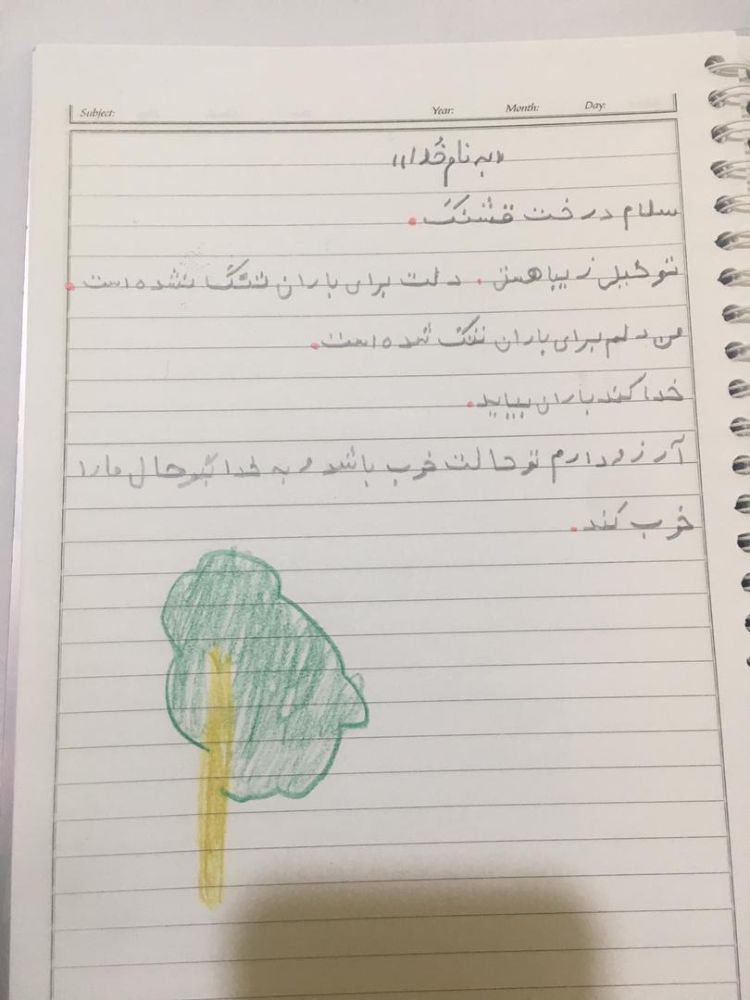 Subject: Year: Month: Day:
«به نام خُدا»
سلام درخت قشنگ.
تو خیلی زیبا هستی. دلت برای باران تنگ نشده است.
من دلم برای باران تنگ شده است.
خدا کند باران بیاید.
آرزو دارم تو حالت خوب باشد و به خدا بگو حال ما را
خوب کند.